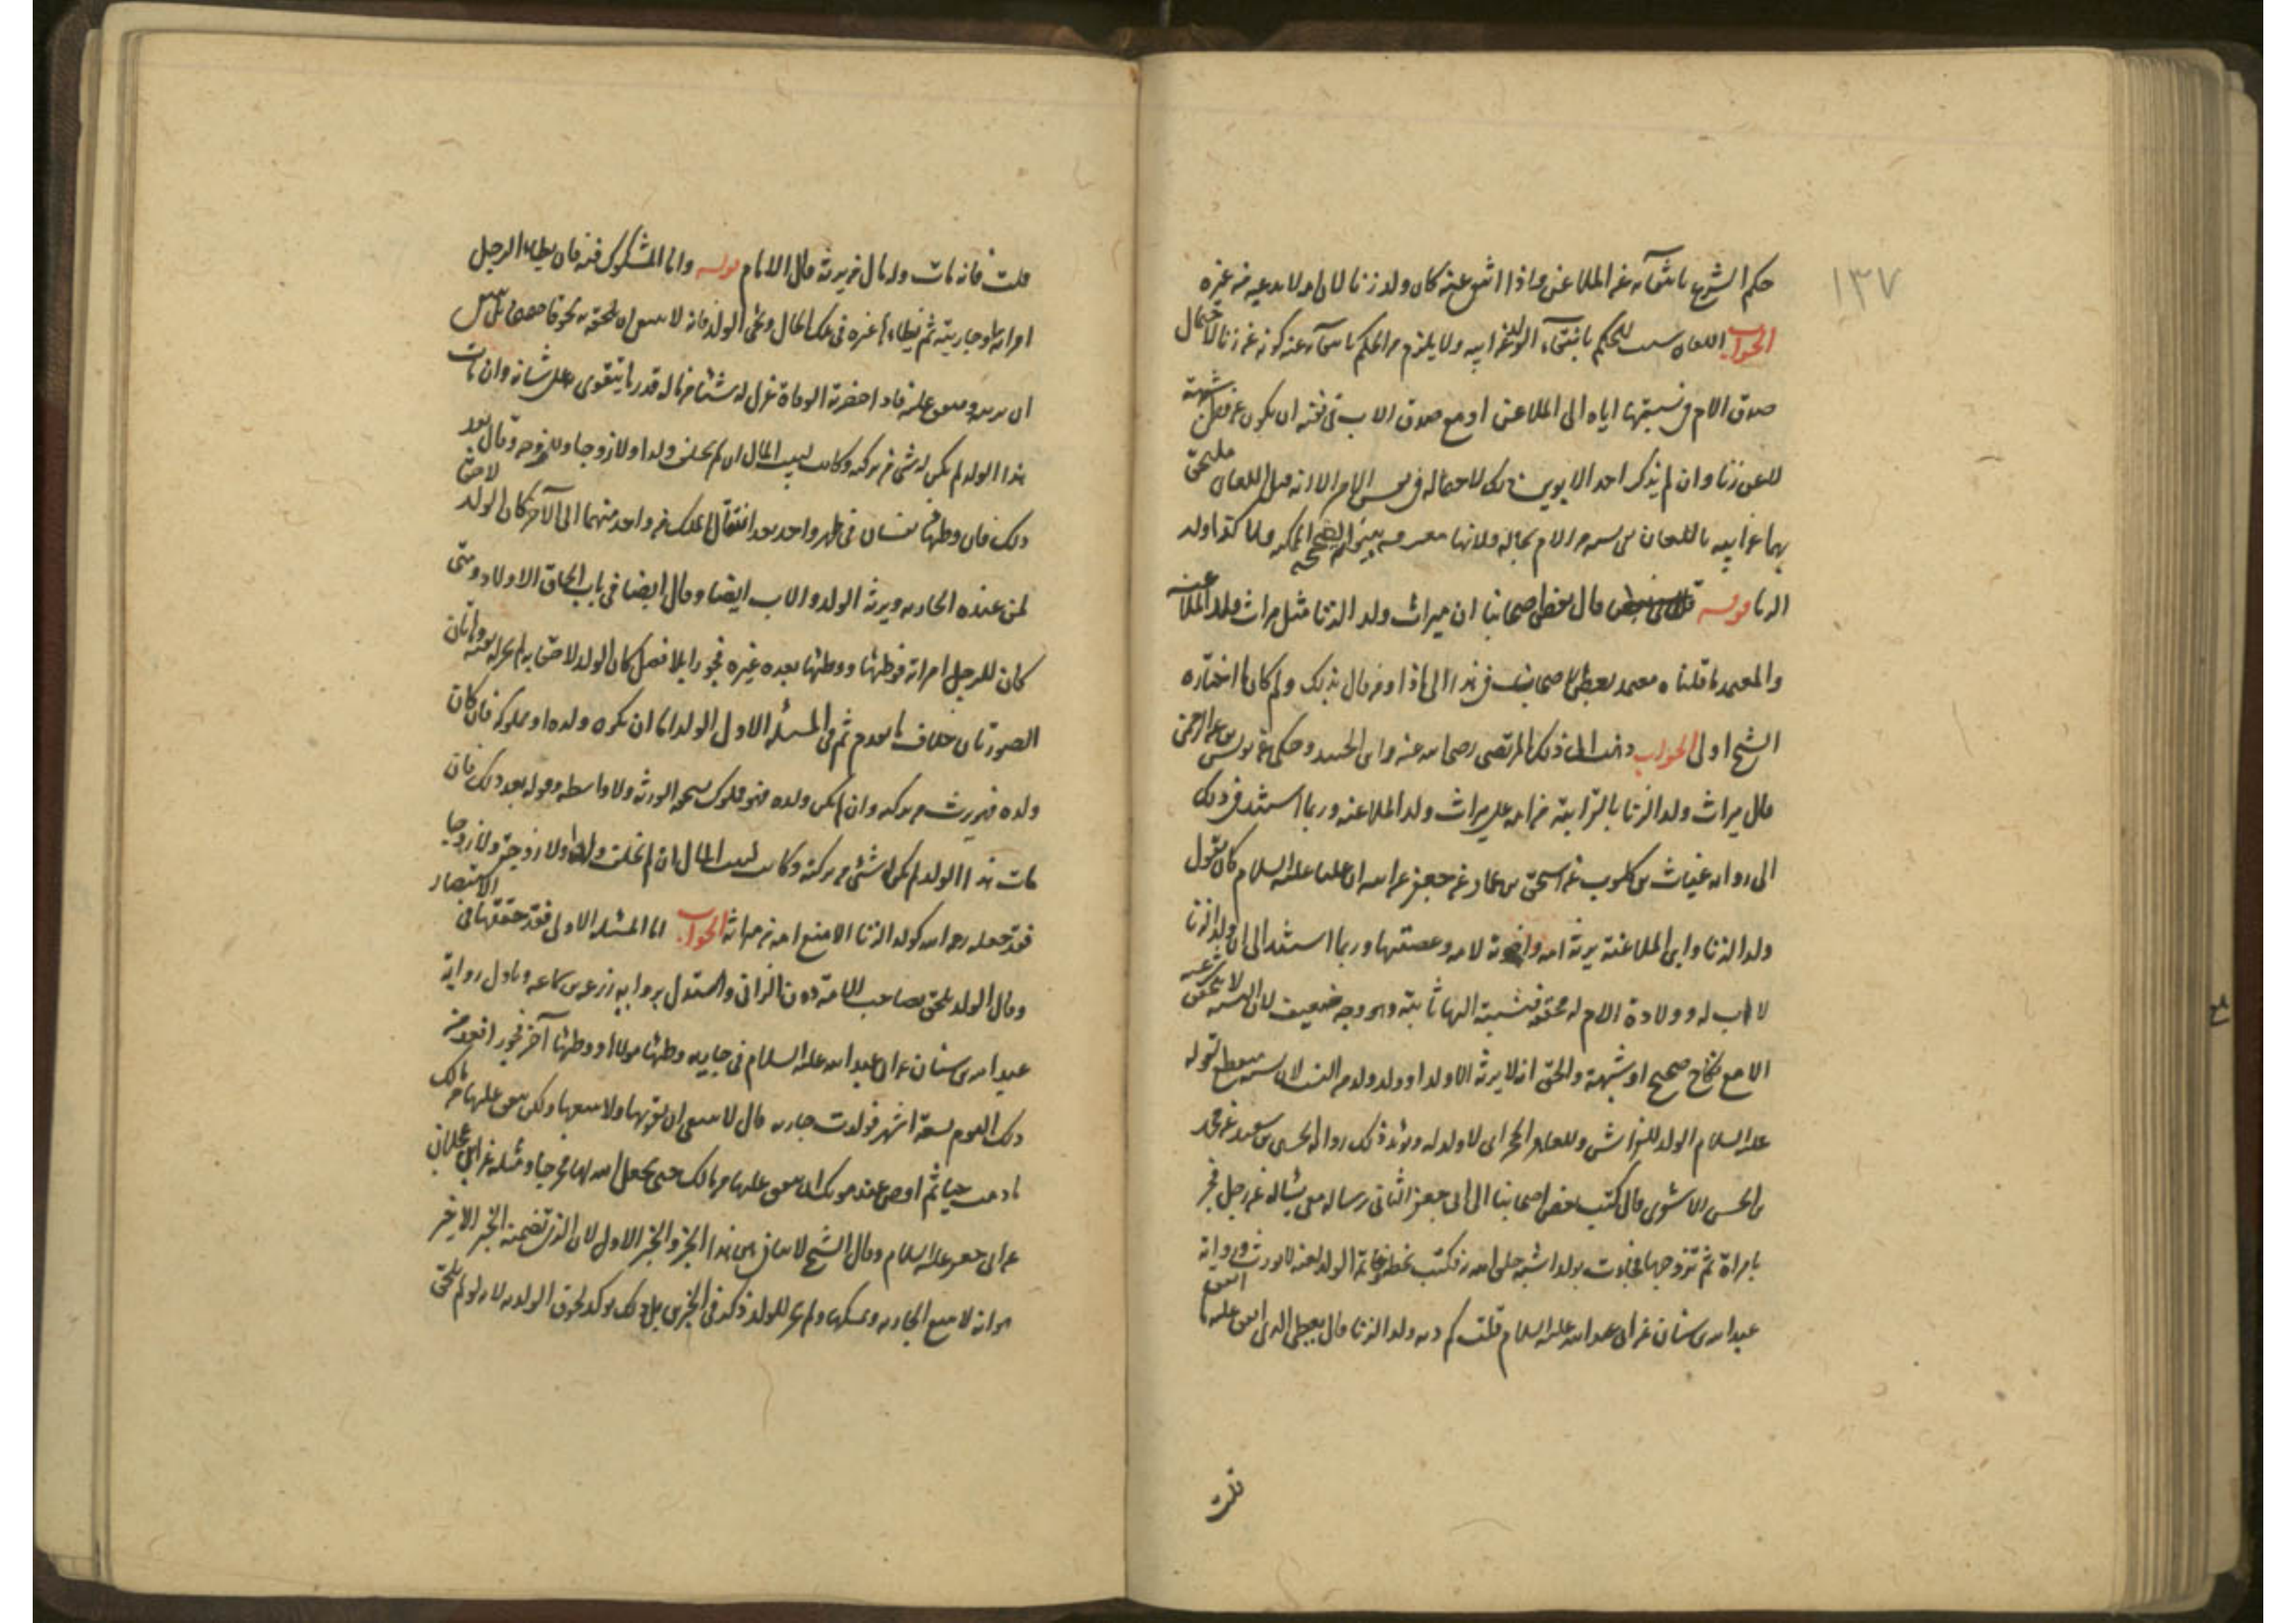 ١٣٧
حكم الشرع بانتفائه عن الملاعن واذا انتفى عنه كان ولد زنا لان امه لا تدعيه من غيره
الجواب اللعان سبب للحكم بانتفاء الولد عن ابيه ولا يلزم من الحكم بانتفائه عنه كونه عن زنا لاحتمال
صدق الام في نسبتها اياه الى الملاعن او مع صدق الاب في نفيه ان يكون عن شبهة
لا عن زنا وان لم يذكر احد الابوين ذلك لاحتماله في نفس الامر الا انه قبل اللعان ملتحق
بهما عن ابيه باللعان نسبه من الام بحاله ولانها
الزنا قوله قال بعض اصحابنا ان ميراث ولد الزنا مثل ميراث ولد الملاعنة
والمعتمد ما قلناه معتمد بعض اصحابنا في هذا الى ماذا ومن قال بذلك ولم كان ما اختاره
الشيخ اولى الجواب ذهب الى ذلك المرتضى رضي الله عنه وابن الجنيد وحكى عن يونس بن عبد الرحمن
قال ميراث ولد الزنا بالقرابة من امه على ميراث ولد الملاعنة وربما استند في ذلك
الى رواية غياث بن كلوب عن اسحق بن عمار عن جعفر عن ابيه ان عليا عليه السلام كان يقول
ولد الزنا وابن الملاعنة يرثه امه واخوته لامه وعصبتها وربما استند الى ان ولد الزنا
لا اب له وولادة الام له محققة فنسبته اليها ثابتة وهو وجه ضعيف لان النسبة لا تتحقق شرعية
الا مع نكاح صحيح او شبهة والحق انه لا يرثه الا ولد او ولد ولد من النسب لان نسبه منقطع لقوله
عليه السلام الولد للفراش وللعاهر الحجر اى لا ولد له ويؤيد ذلك رواية الحسين بن سعيد عن محمد
بن الحسن الاشعرى قال كتب بعض اصحابنا الى ابى جعفر الثانى رسالة معى يسأله عن رجل فجر
بامراة ثم تزوجها فجاءت بولد اشبه خلق الله به فكتب بخطه وخاتمه الولد لغية لا يورث ورواية
عبد الله بن سنان عن ابى عبد الله عليه السلام قلت كم دية ولد الزنا قال يعطى الذى انفق عليه ما انفق
قلت
قلت فانه مات وله مال من يرثه قال الامام قوله واما المشكوك فيه فان يطاء الرجل
امراته او جاريته ثم يطاءها غيره في تلك الحال وتجئ بالولد فانه لا ينبغى ان يلحقه به لحوقا صحيحا بل ينبغى
ان يربيه وينفق عليه فاذا حضرته الوفاة عزل له شيئا من ماله قدر ما يتقوى به على شانه وان مات
هذا الولد لم يكن له شئ من تركته وكانت لبيت المال ان لم يخلف ولدا ولا زوجا ولا زوجة وقال بعد
ذلك فان وطئها نفسان في طهر واحد بعد انتقال الملك من واحد منهما الى الآخر كان الولد لاحقا
لمن عنده الجارية ويرثه الولد والاب ايضا وقال ايضا في باب الحاق الاولاد ومتى
كان للرجل امراة فوطئها ووطئها بعده غيره فجورا بلا فصل كان الولد لاحقا به لم يجز له نفيه وهاتان
الصورتان خلاف ما تقدم ثم في المسئلة الاولى الولد اما ان يكون ولده او مملوكه فان كان
ولده فهو يرث من تركته وان لم يكن ولده فهو مملوك يستحقه الورثة ولا واسطة وقوله بعد ذلك فان
مات هذا الولد لم يكن له شئ من تركته وكانت لبيت المال ان لم يخلف ولدا ولا زوجة ولا زوجا
فقد جعله رحمه الله كولد الزنا الا منع امه من ميراثه الجواب اما المسئلة الاولى فقد حققها في الاستبصار
وقال الولد يلحق بصاحب الامة دون الزانى واستدل برواية زرعة عن سماعة وتاول رواية
عبد الله بن سنان عن ابى عبد الله عليه السلام في جارية وطئها مولاها ووطئها آخر فجورا فعد من
ذلك اليوم تسعة اشهر فولدت جارية قال لا ينبغى ان يقربها ولا يبيعها ولكن ينفق عليها من مالك
ما دمت حيا ثم اوص عند موتك ان ينفق عليها من مالك حتى يجعل الله لها مخرجا ومثله عن ابن عجلان
عن ابى جعفر عليه السلام وقال الشيخ لا تنافى بين هذا الخبر والخبر الاول لان الذى تضمنه الخبر الاخير
هو انه لا يبيع الجارية ويمسكها ولم يجر للولد ذكر في الخبرين بل ذلك يؤكد لحوق الولد به لانه لو لم يلحق